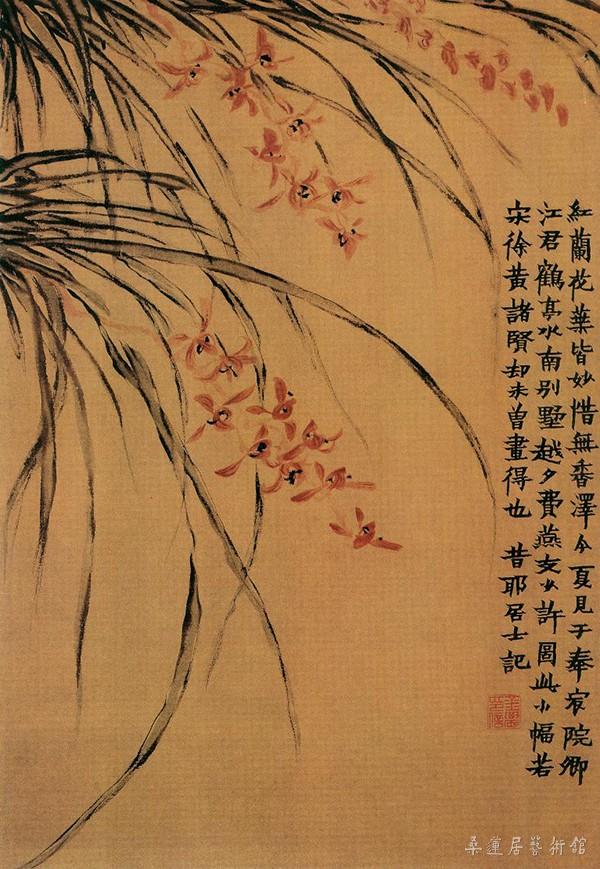 紅蘭花葉皆妙惜無香澤今夏見于奉宸院卿
江君鶴亭水南别墅越夕費燕支少許圖此小幅若
宋徐黃諸賢却未曾畫得也 昔耶居士記
金農印信
桑蓮居藝術館